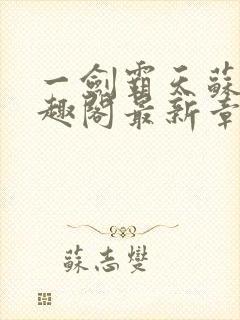 一劍霸天蘇
趣閣最新章
蘇志燮